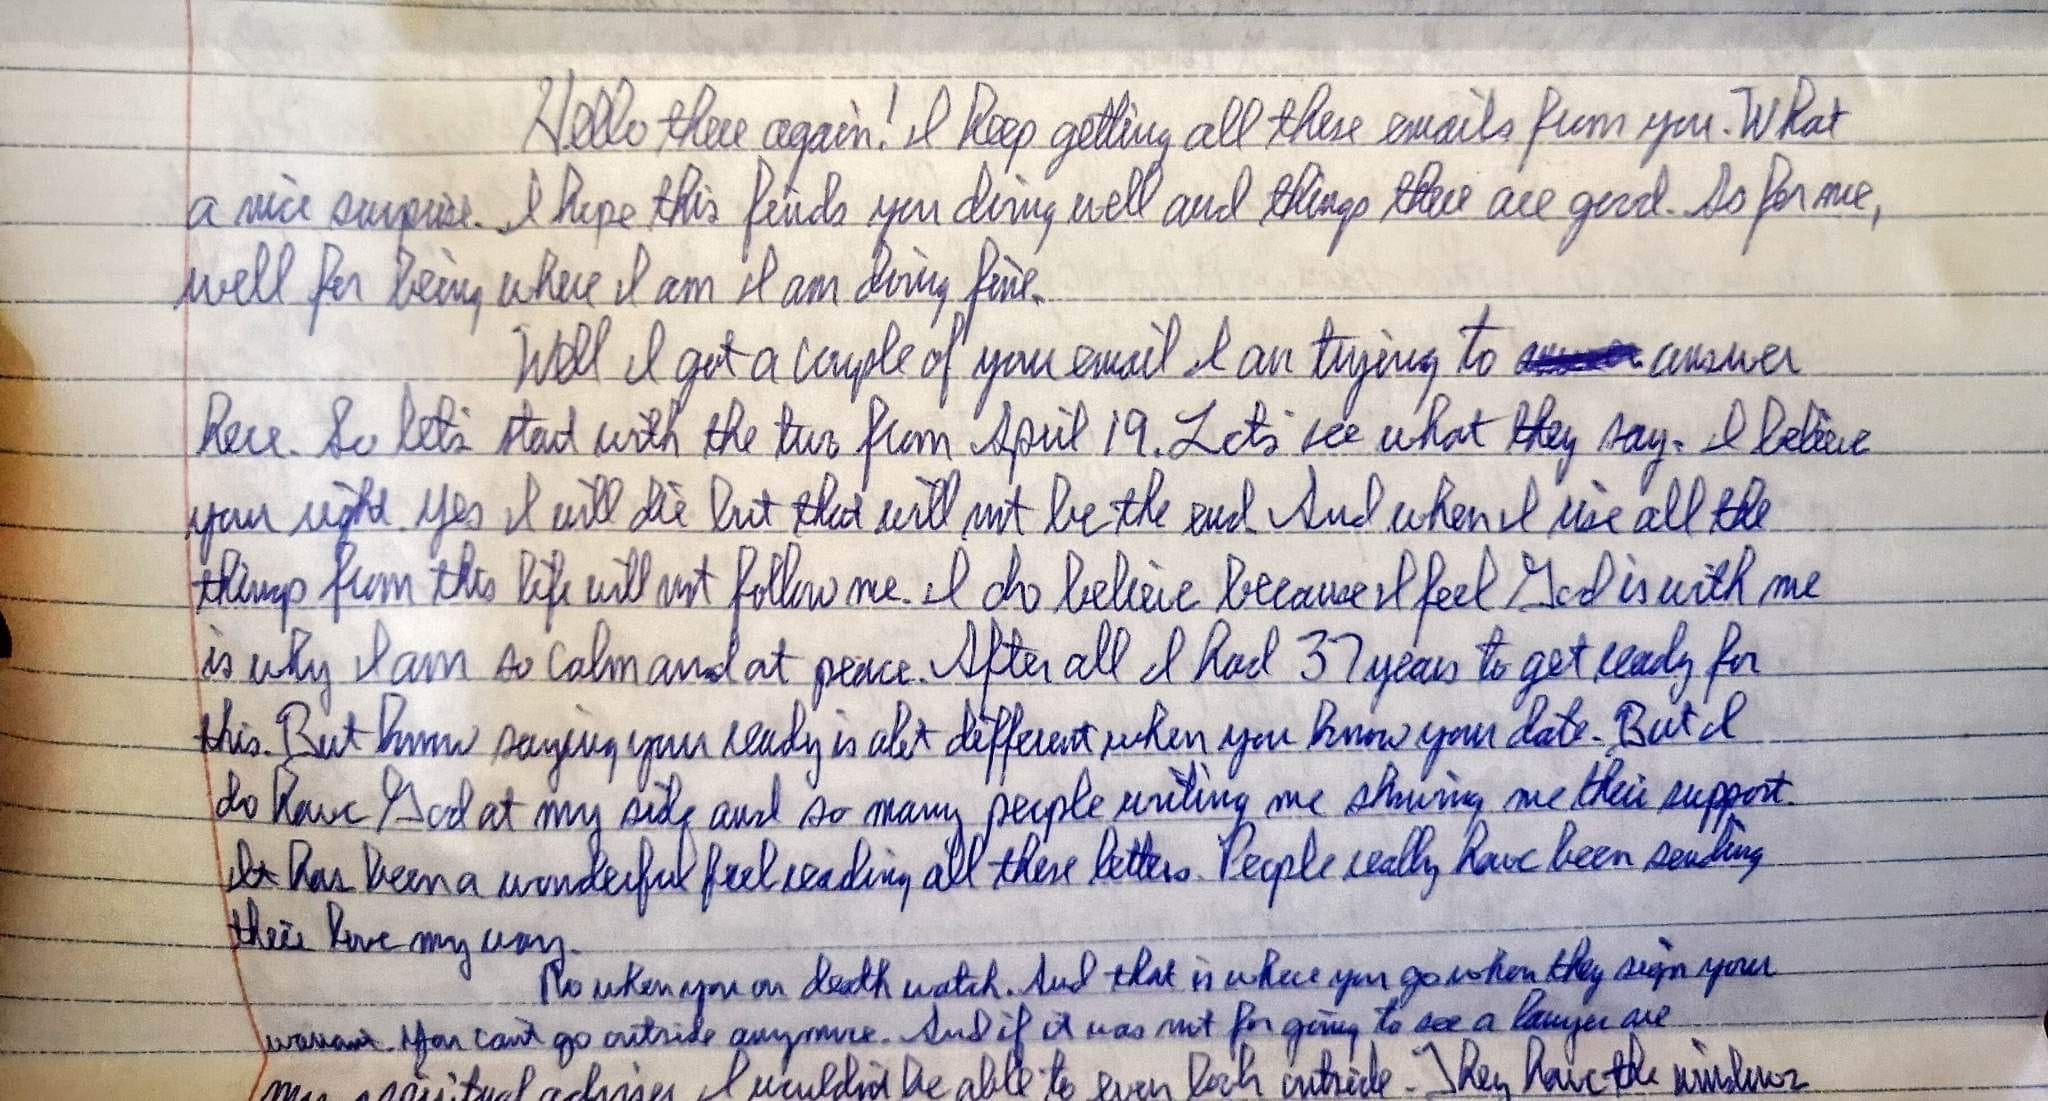 Hello there again! I keep getting all these emails from you. What
a nice surprise. I hope this finds you doing well and things there are good. As for me,
well for being where I am I am doing fine.
Well I got a couple of your email I an trying to answer
here. So let's start with the two from April 19. Let's see what they say. I believe
your right. Yes I will die but that will not be the end. And when I rise all the
things from this life will not follow me. I do believe because I feel God is with me
is why I am so calm and at peace. After all I had 37 years to get ready for
this. But know saying your ready is alot different when you know your date. But I
do have God at my side and so many people writing me showing me their support.
It has been a wonderful feel reading all these letters. People really have been sending
their love my way.
No when you on death watch. And that is where you go when they sign your
warrant. You can't go outside anymore. And if it was not for going to see a lawyer are
my spiritual adviser I wouldn't be able to even look outside. They have the windows